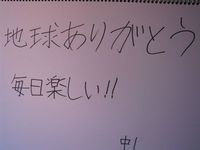 地球ありがとう
毎日楽しい!!
中1